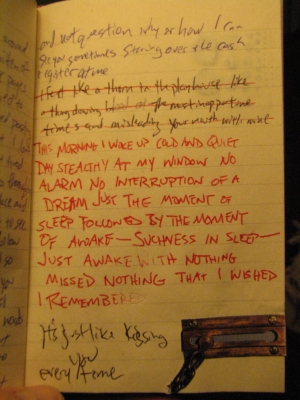 and not question why or how I can
see you sometimes staring over the cash
register at me
I feel like a thorn in the playhouse like
a thing drawing blood at the most inopportune
time's and misleading your mouth with mine
THIS MORNING I WOKE UP COLD AND QUIET
DAY STEALTHY AT MY WINDOW NO
ALARM NO INTERRUPTION OF A
DREAM JUST THE MOMENT OF
SLEEP FOLLOWED BY THE MOMENT
OF AWAKE — SUCHNESS IN SLEEP —
JUST AWAKE WITH NOTHING
MISSED NOTHING THAT I WISHED
I REMEMBERED
It's just like kissing
you
every time